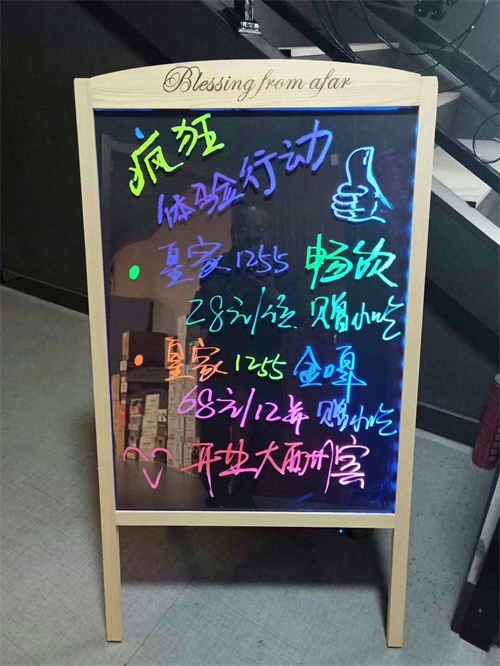 Blessing from afar
疯狂
体验行动
皇家1255 畅饮
28元/位 赠小吃
皇家1255 金啤
68元/12瓶 赠小吃
开业大酬宾